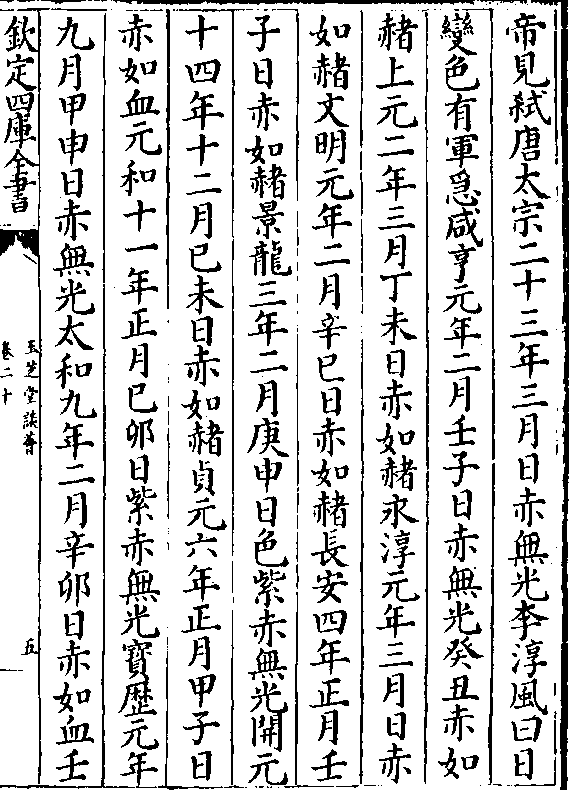 帝見弑唐太宗二十三年三月日赤無光李淳風曰日
變色有軍急咸亨元年二月壬子日赤無光癸丑赤如
赭上元二年三月丁未日赤如赭永淳元年三月日赤
如赭文明元年二月辛巳日赤如赭長安四年正月壬
子日赤如赭景龍三年二月庚申日色紫赤無光開元
十四年十二月已未日赤如赭貞元六年正月甲子日
赤如血元和十一年正月已卯日紫赤無光寶歴元年
九月甲申日赤無光太和九年二月辛卯日赤如血壬
欽定四庫全書
玉芝堂談薈
卷二十
五